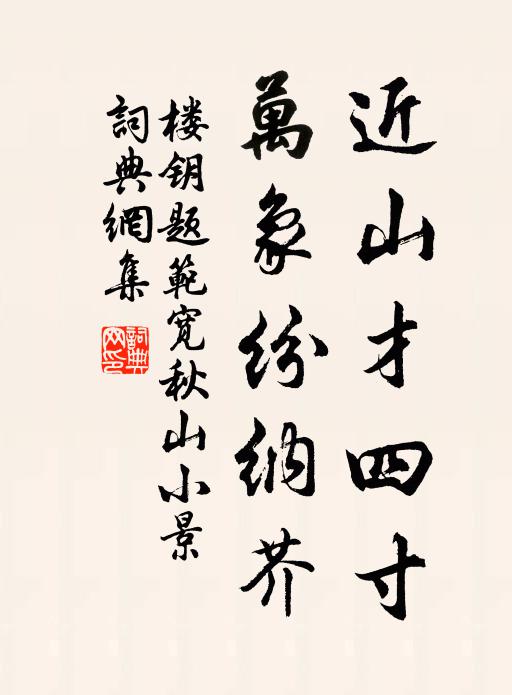 近山才四寸
萬象紛納芥
楼钥题範宽秋山小景
詞典網集
詞典
网印